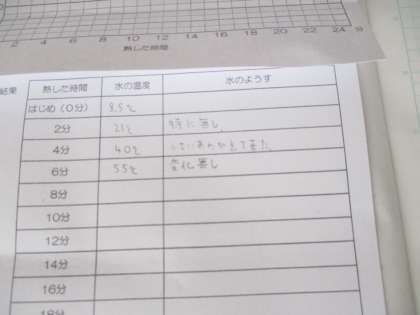 2 4 6 8 10 12 14 16 18 20 22 24
熱した時間
結果 熱した時間 水の温度 水のようす
はじめ（0分） 8.5℃
2分 21℃ 特に無し
4分 40℃ 小さいあわが出て来た
6分 55℃ 変化無し
8分
10分
12分
14分
16分
18分